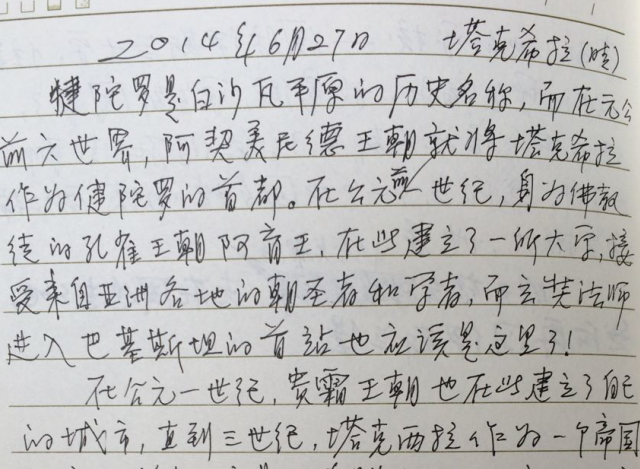 2014年6月27日 塔克希拉(晴)
犍陀罗是白沙瓦平原的历史名称,而在元公
前六世界,阿契美尼德王朝就将塔克希拉
作为健陀罗的首都。在公元前 世纪,身为佛教
徒的孔雀王朝阿育王,在此建立了一所大学,接
受来自亚洲各地的朝圣者和学者,而玄奘法师
进入巴基斯坦的首站也应该是这里了!
在公元一世纪,贵霜王朝也在此建立了自己
的城市,直到三世纪,塔克西拉作为一个帝国